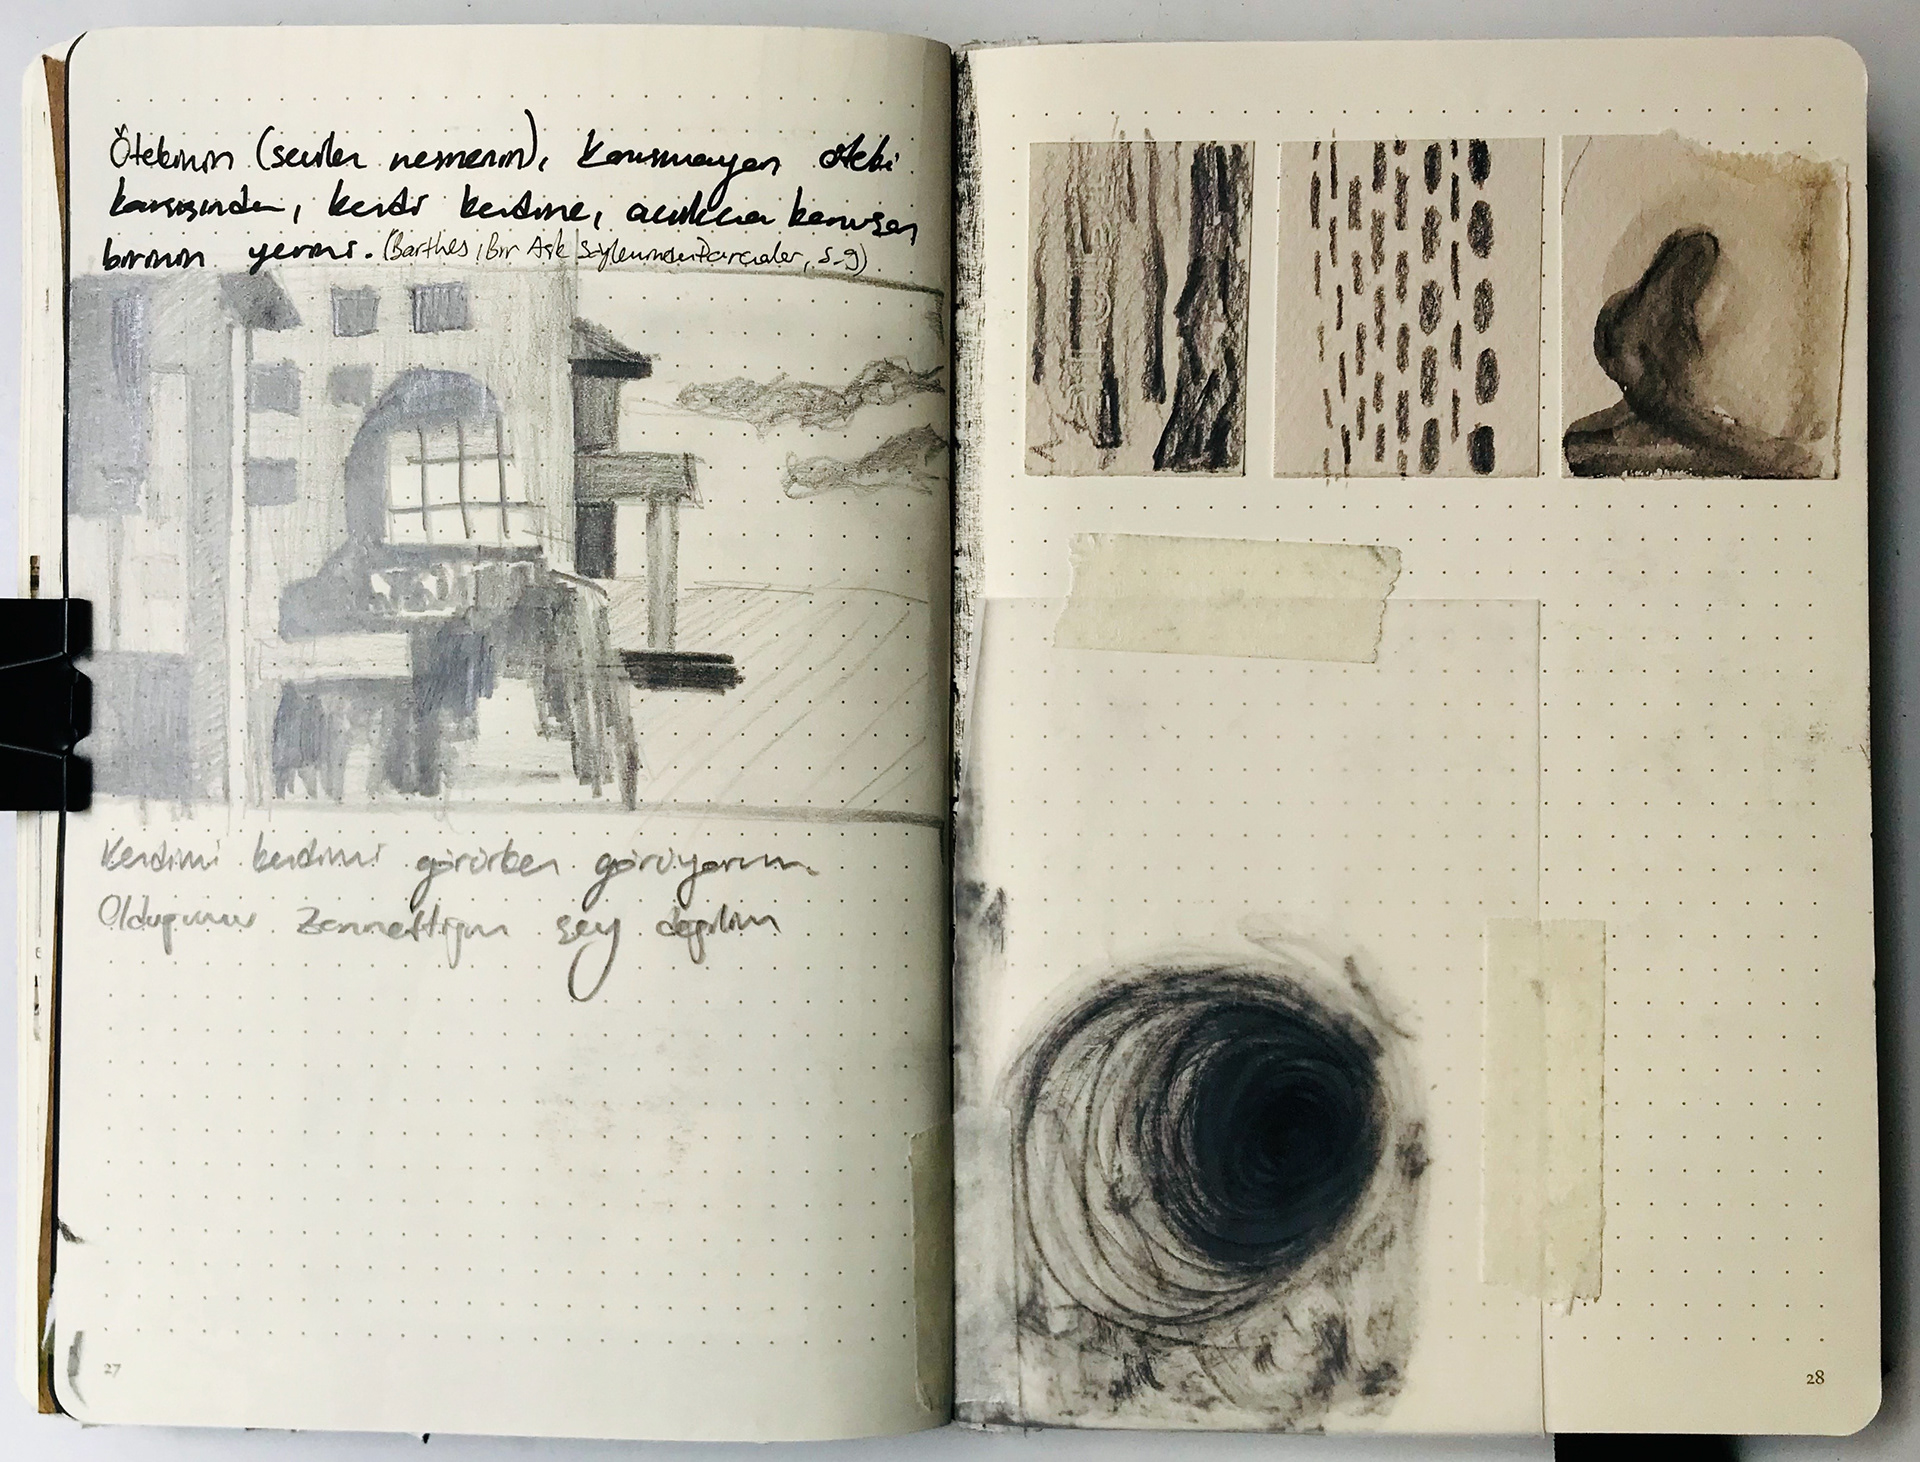 Ötekinin (sevilen nesnenin), konuşmayan öteki
karşısında, kendi kendine, acıklıca konuşan
birinin yerini. (Barthes, Bir Aşk Söyleminden Parçalar, s-9)
Kendimi kendimi görürken görüyorum
Olduğumu zannettiğim şey değilim
27
28